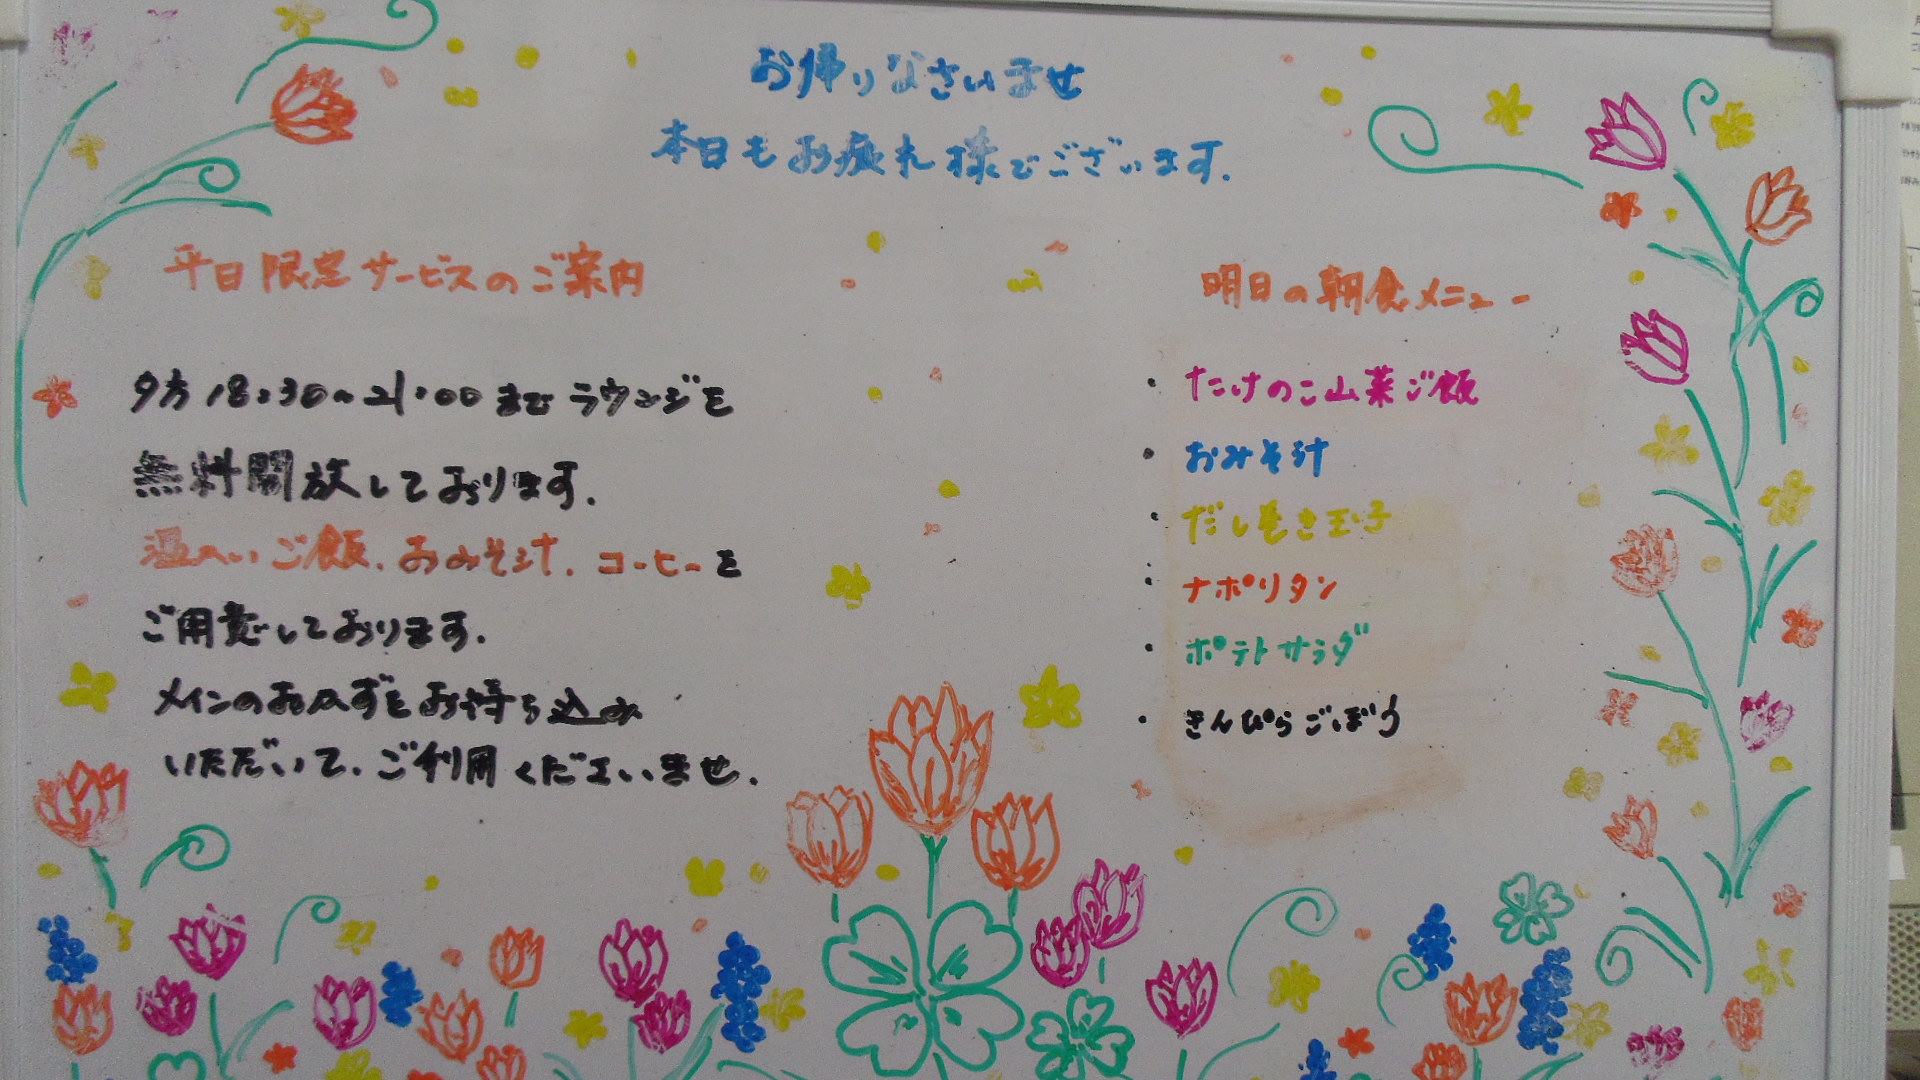 お帰りなさいませ
本日もお疲れ様でございます.
平日限定サービスのご案内
夕方18:30~21:00までラウンジを
無料開放しております.
温かいご飯.おみそ汁.コーヒーを
ご用意しております.
メインのおかずをお持ち込み
いただいて.ご利用くださいませ.
明日の朝食メニュー
・たけのこ山菜ご飯
・おみそ汁
・だし巻き玉子
・ナポリタン
・ポテトサラダ
・きんぴらごぼう